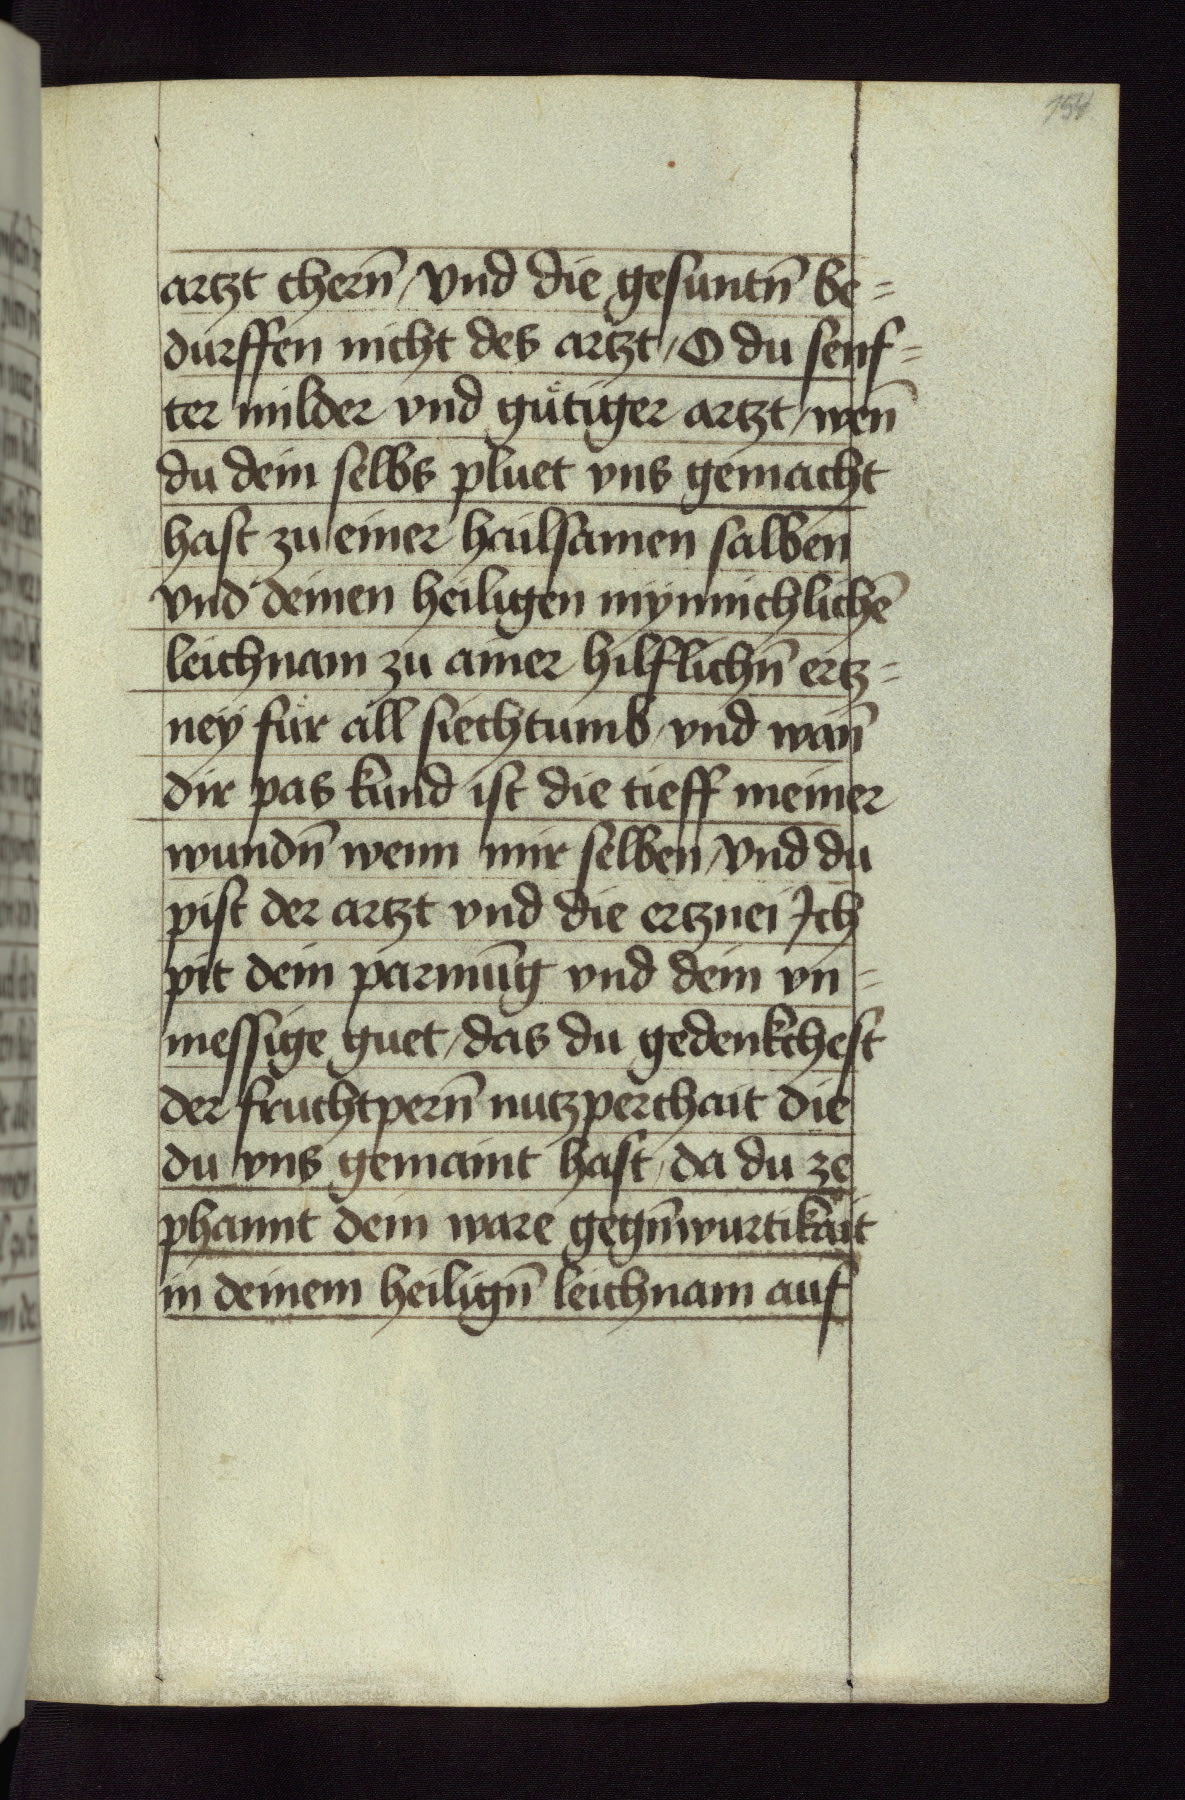 154
artzt chern̄ / Vnd die gesuntn̄ be=
durffen nicht des artzt / O du senf=
ter milder vnd guͤtiger artzt / wen̄
du dein selbs pluet vns gemacht
hast zu einer hailsamen salben
vnd deinen heiligen mynnichlichē
leichnam zu ainer hilflichn̄ ertz=
ney fuͤr all siechtumb / vnd wan̄
dir pas kund ist die tieff meiner
wundn̄ wenn mir selben / Vnd du
pist der artzt vnd die ertznei Ich
pit dein parmūg vnd dein vn=
messige guet / das du gedenkchest
der fruchtpern̄ nutzperchait die
du vns gemaint hast / da du ze
phannt dein ware gegn̄wurtikait
in deinem heilign̄ leichnam auf